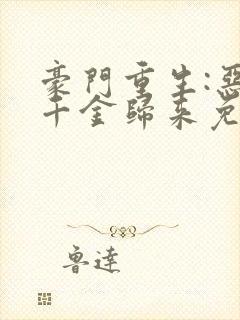 豪門重生:惡
千金歸來免
魯達